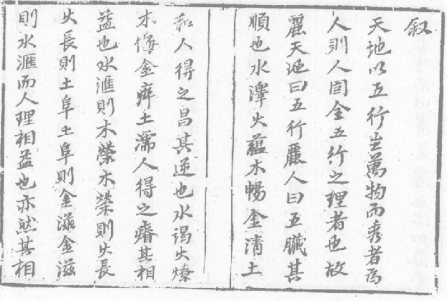 叙
天地以五行生萬物而秀者爲
人則人固全五行之理者也故
麗天地曰五行麗人曰五臟其
順也水澤火蘊木暢金清土
和人得之昌其逆也水涸火燥
木傷金痺土濡人得之瘠其相
益也水滙則木榮木榮則火長
火長則土阜土阜則金滋金滋
則水滙而人理相益也亦然其相